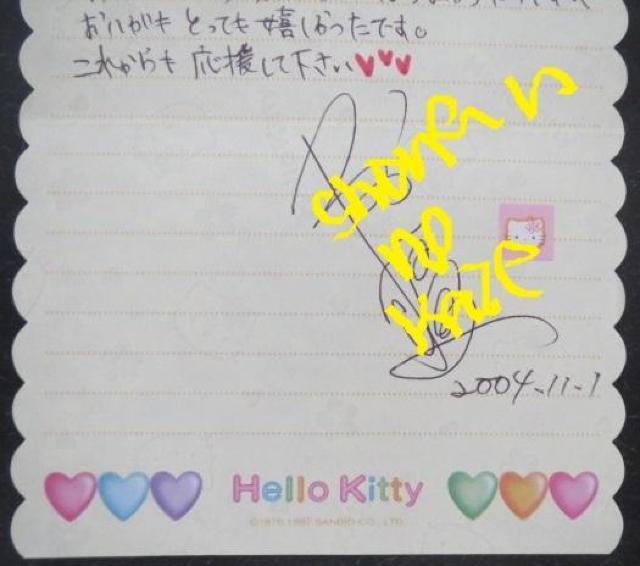 おハガキ とっても嬉しかったです。
これからも 応援して下さい
Shonen
no
Kaze
2004.-11.-1
Hello Kitty
©1976,1997 SANRIO CO., LTD.